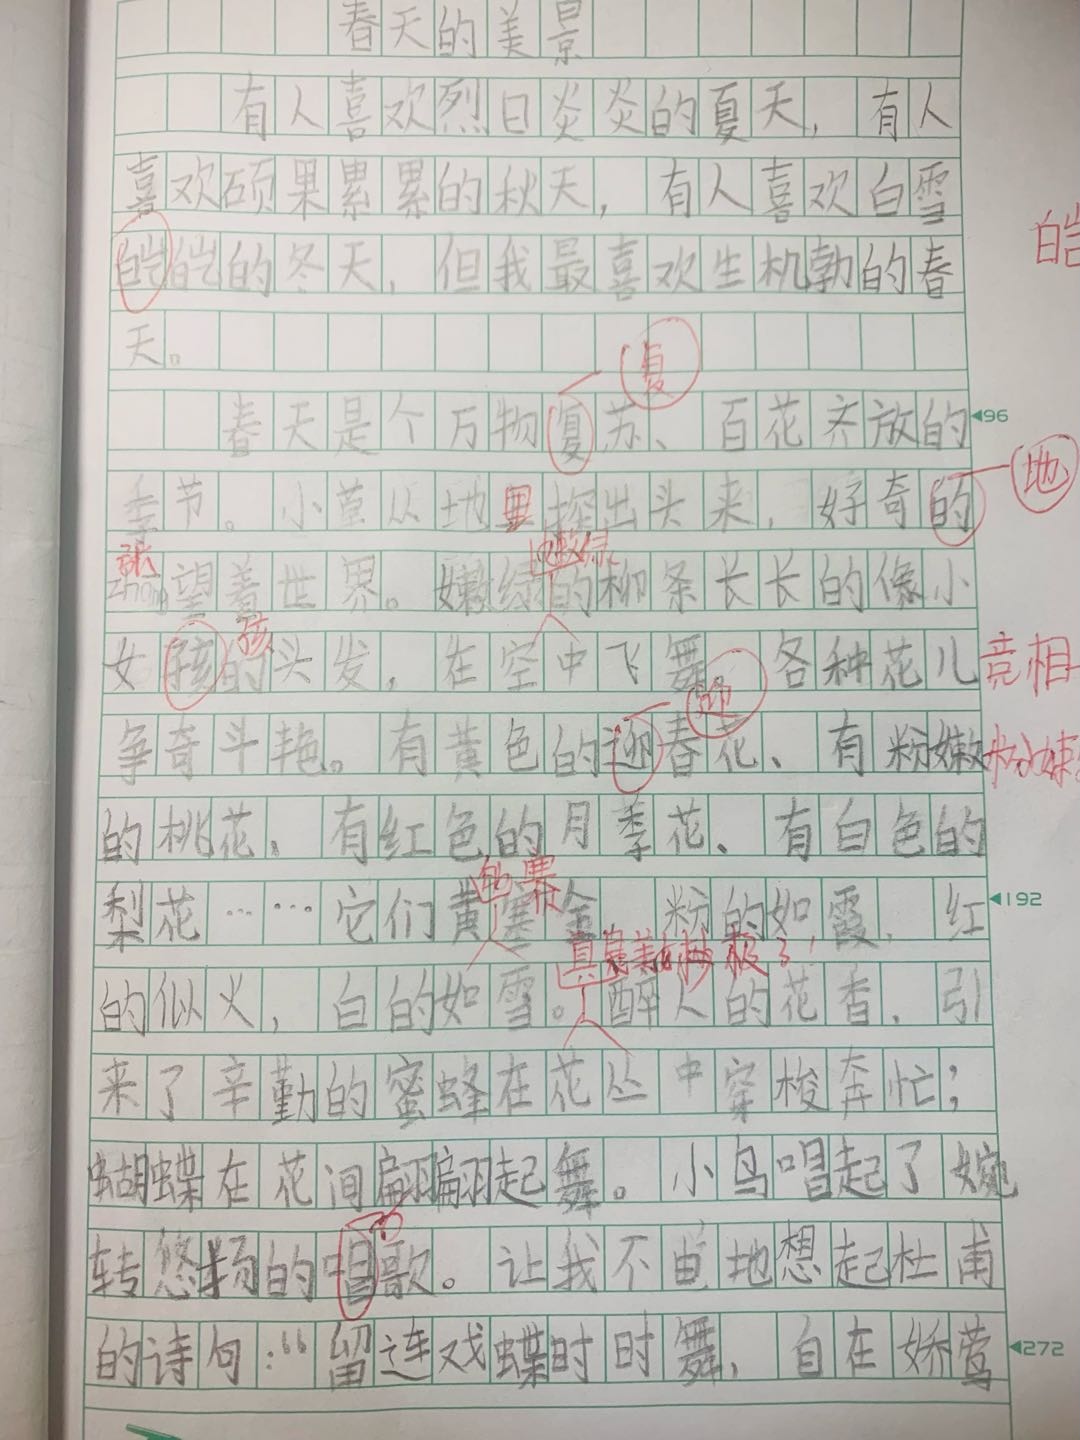 春天的美景
有人喜欢烈日炎炎的夏天，有人
喜欢硕果累累的秋天，有人喜欢白雪
皑皑的冬天，但我最喜欢生机勃的春
皑
天。
复
春天是个万物复苏、百花齐放的
96
季节。小草从地里探出头来，好奇的
地
张
zhang望着世界。嫩绿的柳条长长的像小
孩
女孩的头发，在空中飞舞。各种花儿
竞相
迎
争奇斗艳。有黄色的迎春花、有粉嫩
的桃花、有红色的月季花、有白色的
梨花……它们黄塞金，粉的如霞，红
192
的赛
真是美妙极了！
的似火，白的如雪。醉人的花香，引
来了辛勤的蜜蜂在花丛中穿梭奔忙；
蝴蝶在花间翩翩起舞。小鸟唱起了婉
转悠扬的唱歌。让我不由地想起杜甫
的诗句：“留连戏蝶时时舞，自在娇莺
272